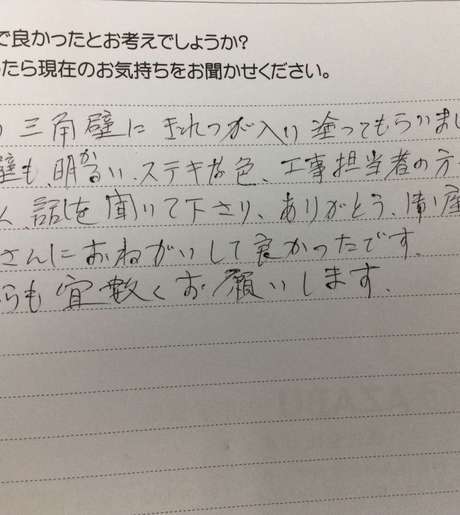 で良かったとお考えでしょうか?
ったら現在のお気持ちをお聞かせください。
三角壁にきれつが入り塗ってもらいまし
壁も、明かるい、ステキな色、工事担当者の方
話しを聞いて下さり、ありがとう、
さんにおねがいして良かったです。
らも宜敷くお願いします。